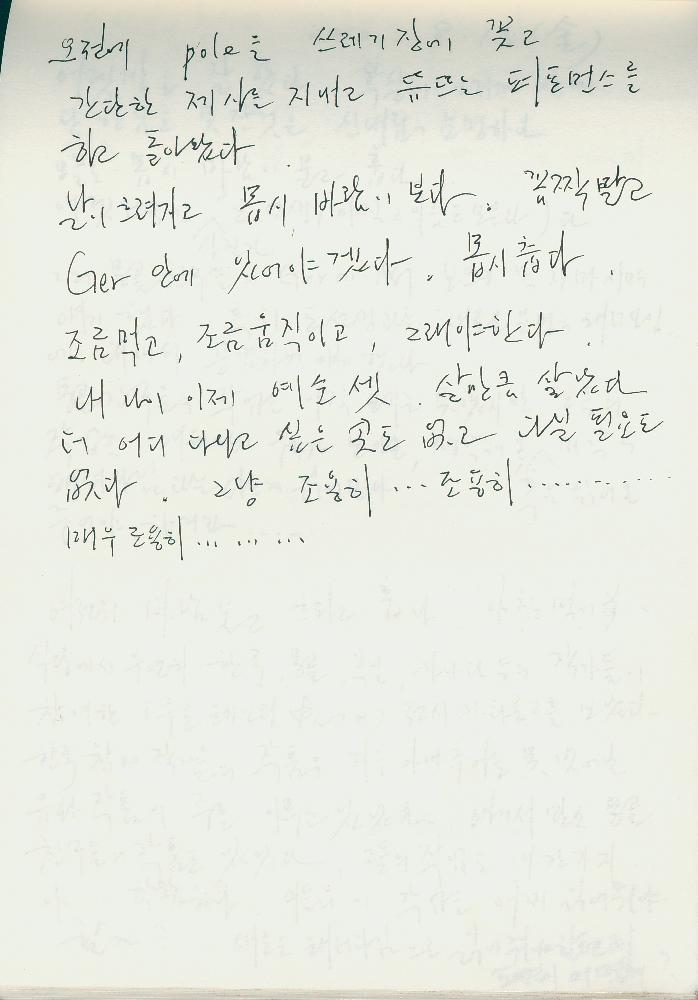 오전에 pole를 쓰레기장에 꽂고
간단한 제사를 지내고 퍼포먼스를
하고 돌아왔다
날이 흐려지고 몹시 바람이 분다. 꼼짝말고
Ger 안에 있어야겠다. 몹시 춥다.
조금먹고, 조금 움직이고, 그래야한다.
내 나이 이제 예순 셋. 살만큼 살았다
더 어디 다니고 싶은 곳도 없고 다닐 필요도
없다. 그냥 조용히 ... 조용히 ...........
매우 조용히 ... ... ...